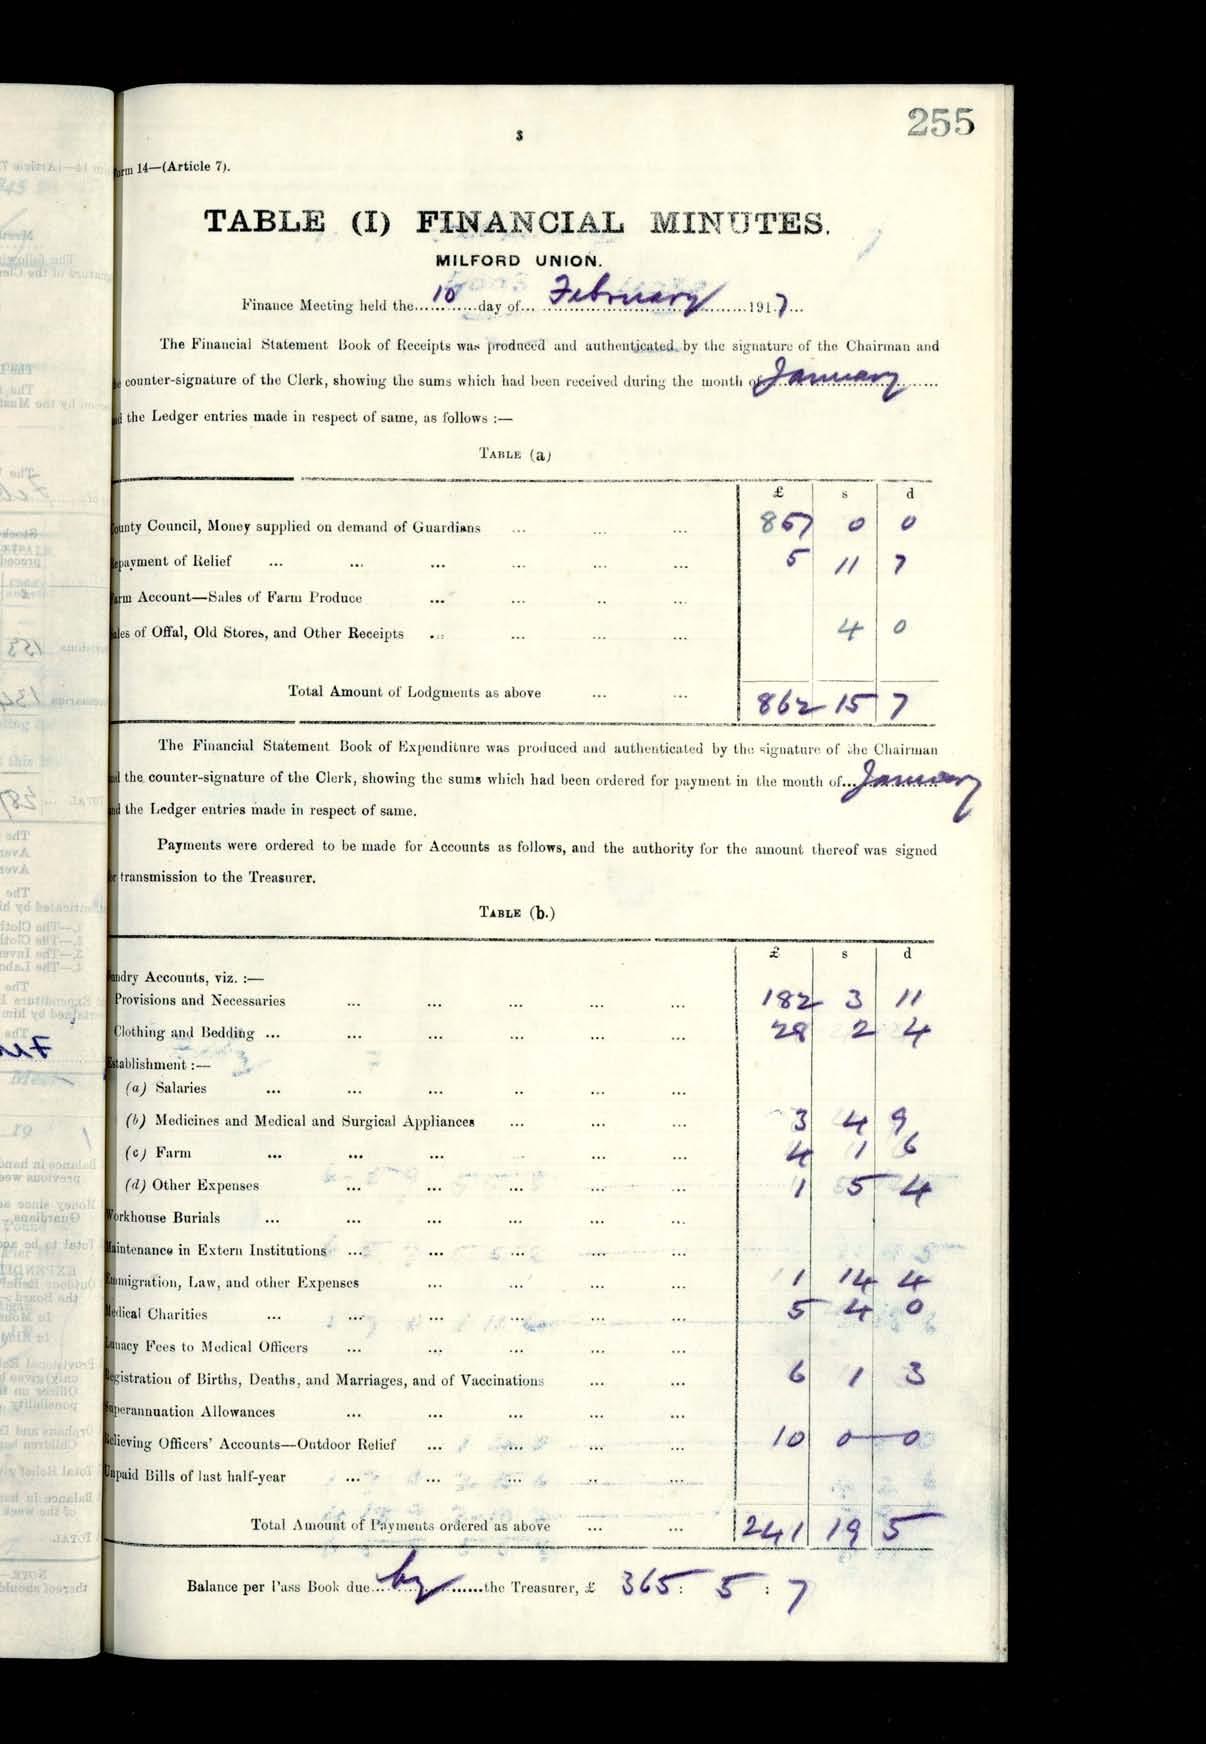 255
3
orm 14—(Article 7).
TABLE (I) FINANCIAL MINUTES.
MILFORD UNION.
Finance Meeting held the 10 day of February 1917
The Financial Statement Book of Receipts was produced and authenticated by the signature of the Chairman and
counter-signature of the Clerk, showing the sums which had been received during the month of January
the Ledger entries made in respect of same, as follows :—
TABLE (a)
£ s d
ounty Council, Money supplied on demand of Guardians ... ... ... 857 0 0
epayment of Relief ... ... ... ... ... ... 5 11 7
arm Account—Sales of Farm Produce ... ... .. ...
ales of Offal, Old Stores, and Other Receipts ... ... ... ... 4 0
Total Amount of Lodgments as above ... ... 862 15 7
The Financial Statement Book of Expenditure was produced and authenticated by the signature of the Chairman
the counter-signature of the Clerk, showing the sums which had been ordered for payment in the month of January
nd the Ledger entries made in respect of same.
Payments were ordered to be made for Accounts as follows, and the authority for the amount thereof was signed
transmission to the Treasurer.
TABLE (b.)
£ s d
undry Accounts, viz. :—
Provisions and Necessaries ... ... ... ... ... 182 3 11
Clothing and Bedding ... ... ... ... ... ... 28 2 4
Establishment :—
(a) Salaries ... ... ... .. ... ...
(b) Medicines and Medical and Surgical Appliances ... ... ... 3 4 9
(c) Farm ... ... ... ... ... ... 4 1 6
(d) Other Expenses ... ... ... ... ... 1 5 4
Workhouse Burials ... ... ... ... ... ...
Maintenance in Extern Institutions ... ... ... ... ...
Emmigration, Law, and other Expenses ... ... ... ... 1 14 4
Medical Charities ... ... ... ... ... ... 5 4 0
Lunacy Fees to Medical Officers ... ... ... ... ...
Registration of Births, Deaths, and Marriages, and of Vaccinations ... ... 6 1 3
Superannuation Allowances ... ... ... ... ...
Relieving Officers' Accounts—Outdoor Relief ... ... ... ... 10 0 0
Unpaid Bills of last half-year ... ... ... .. ...
Total Amount of Payments ordered as above ... ... 241 19 5
Balance per Pass Book due by the Treasurer, £ 365 : 5 : 7